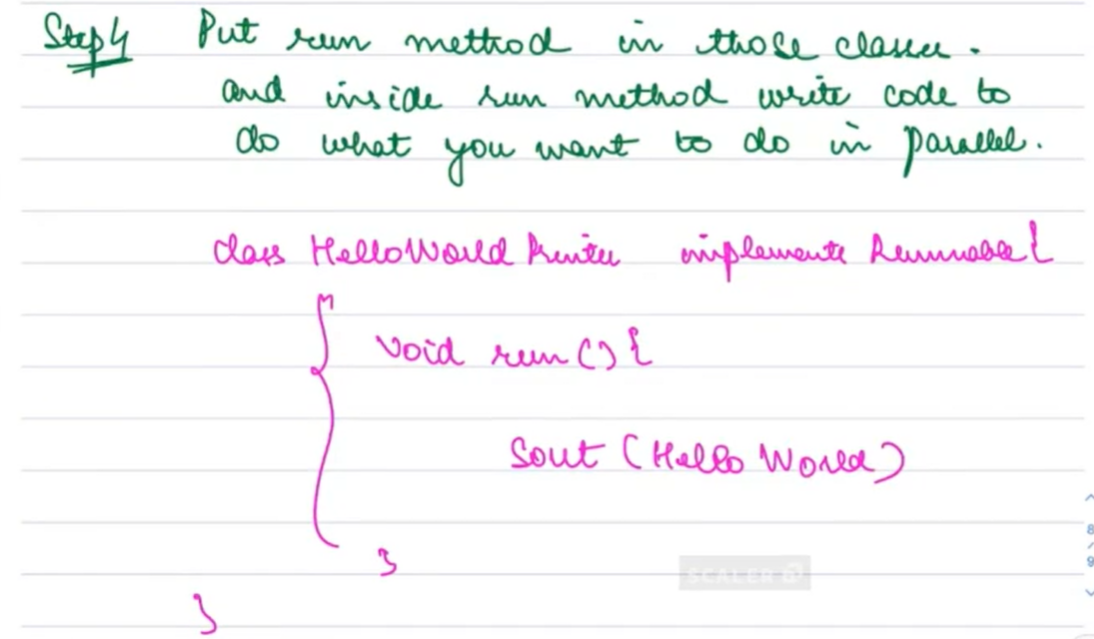 Step 4 Put run method in those classes.
and inside run method write code to
do what you want to do in parallel.
class HelloWorldPrinter implements Runnable {
void run() {
Sout (Hello World)
}
}
SCALER
8
9